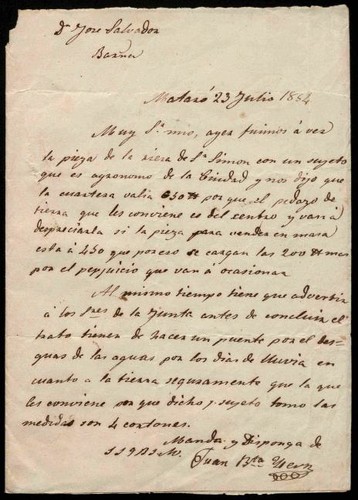 Dn Jose Salvador
Mataró 23 Julio 1884
Muy Sr. mio, ayer fuimos á ver
la pieza de la riera de Sn Simon con un sujeto
que es agronomo de la Ciudad y nos dijo que
la cuartera valia 650 tt por que el pedazo de
tierra que les conviene es del centro y van á
despreciarla si la pieza para vender en masa
esta á 450 que por eso se cargan las 200 tt mas
por el perjuicio que van á ocasionar.
Al mismo tiempo tiene que advertir
á los Sres de la Junta antes de concluir el
trato tienen de hacer un puente por el des-
guas de las aguas por los dias de lluvia en
cuanto a la tierra seguramente que la que
les conviene por que dicho sujeto tomo las
medidas son 4 cortones.
Mande y disponga de
S S Q B S M.
Juan Bta